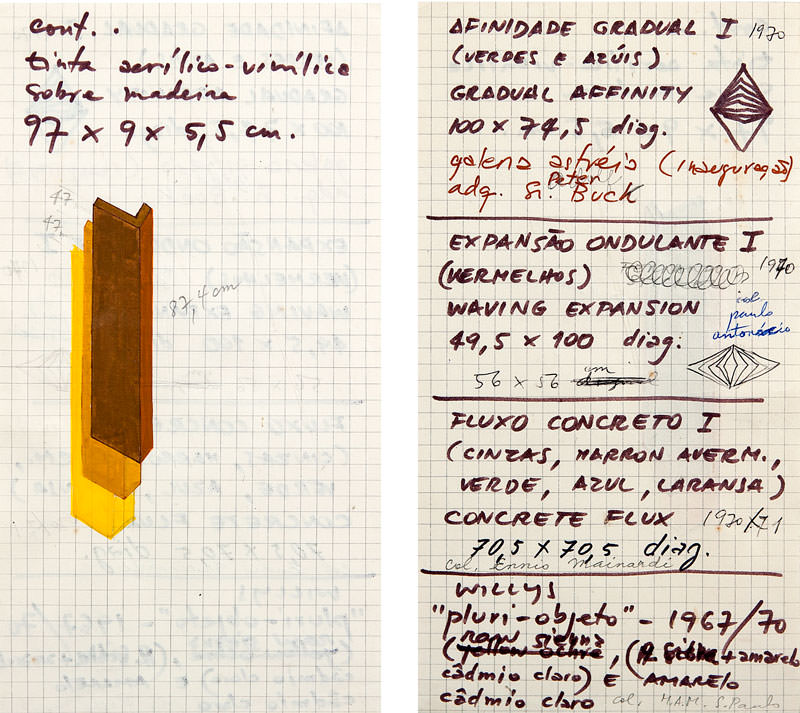 cont. .
tinta acrílico-vinílica
sobre madeira
97 x 9 x 5,5 cm.
47
47,
87,4 cm
AFINIDADE GRADUAL I 1970
(VERDES E AZÚIS)
GRADUAL AFFINITY
100 x 74,5 diag.
galeria astréia (inauguração)
adq. Sr. Peter Buck
EXPANSÃO ONDULANTE I
(VERMELHOS) 1970
WAVING EXPANSION
col
paulo
antonácio
49,5 x 100 diag.
56 x 56 cm
FLUXO CONCRETO I
(CINZAS, MARRON AVERM.,
VERDE, AZUL, LARANJA)
CONCRETE FLUX 1970/71
70,5 x 70,5 diag.
col. Ennio Mainardi
WILLYS
"pluri-objeto" - 1967/70
raw sienna
(yellow ochre, + amarelo
câdmio claro) E AMARELO
câdmio claro col. M.A.M. S. Paulo